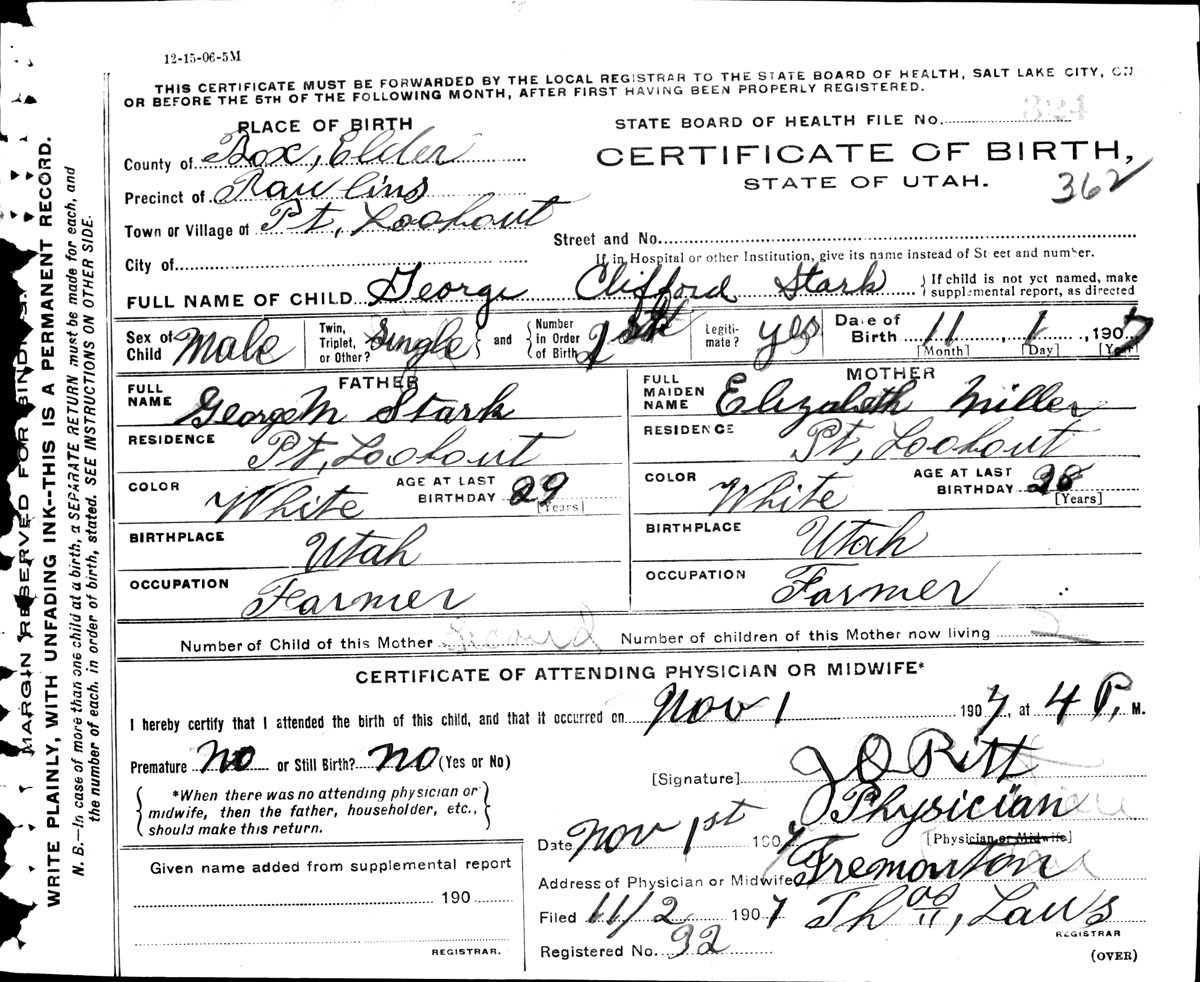 12-15-06-5M
THIS CERTIFICATE MUST BE FORWARDED BY THE LOCAL REGISTRAR TO THE STATE BOARD OF HEALTH, SALT LAKE CITY, ON
OR BEFORE THE 5TH OF THE FOLLOWING MONTH, AFTER FIRST HAVING BEEN PROPERLY REGISTERED.
PLACE OF BIRTH
County of Box, Elder
Precinct of Rawlins
Town or Village of Pt, Lookout
City of
STATE BOARD OF HEALTH FILE NO. 324
CERTIFICATE OF BIRTH,
STATE OF UTAH.
362
Street and No.
If in Hospital or other Institution, give its name instead of Street and number.
FULL NAME OF CHILD George Clifford Stark { If child is not yet named, make supplemental report, as directed
Sex of Child Male Twin, Triplet, or Other? Single } and { Number in Order of Birth Legiti-mate? yes Date of Birth 11, 1, 1907
[Month] [Day] [Year]
FATHER
FULL NAME George M Stark
RESIDENCE Pt, Lookout
COLOR White AGE AT LAST BIRTHDAY 29 [Years]
BIRTHPLACE Utah
OCCUPATION Farmer
MOTHER
FULL MAIDEN NAME Elizabeth Miller
RESIDENCE Pt, Lookout
COLOR White AGE AT LAST BIRTHDAY 28 [Years]
BIRTHPLACE Utah
OCCUPATION Farmer
Number of Child of this Mother Second Number of children of this Mother now living 2
CERTIFICATE OF ATTENDING PHYSICIAN OR MIDWIFE*
I hereby certify that I attended the birth of this child, and that it occurred on Nov 1 1907, at 4 P. M.
Premature No or Still Birth? No (Yes or No)
*When there was no attending physician or
midwife, then the father, householder, etc.,
should make this return.
[Signature] J O Ritt
Physician
[Physician or Midwife]
Date Nov 1st 1907
Address of Physician or Midwife Tremonton
Filed 11/2 1907 Thos, Laws
REGISTRAR
Registered No. 92
(OVER)
Given name added from supplemental report
190
REGISTRAR.
MARGIN RESERVED FOR BINDING.
WRITE PLAINLY, WITH UNFADING INK--THIS IS A PERMANENT RECORD.
N. B.—In case of more than one child at a birth, a SEPARATE RETURN must be made for each, and
the number of each, in order of birth, stated. SEE INSTRUCTIONS ON OTHER SIDE.